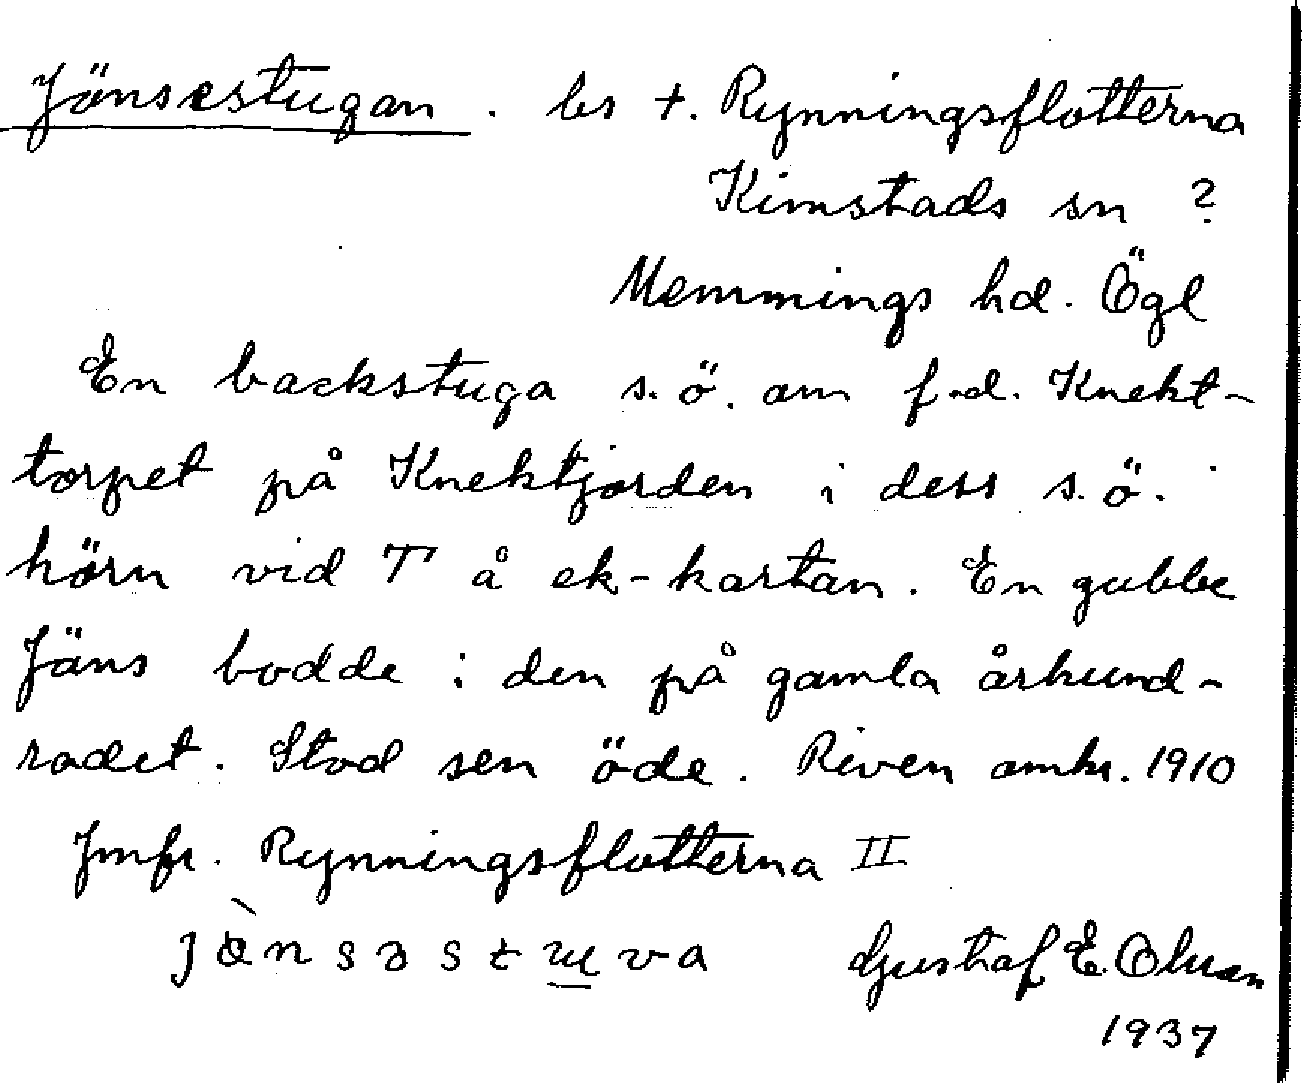 Jänsestugan. bs t. Rynningsflotterna
Kimstads sn ?
Memmings hd. Ögl
En backstuga s.ö. om f.d. Knekt-
torpet på Knektjorden i dess s.ö.
hörn vid T å ek-kartan. En gubbe
Jäns bodde i den på gamla århund-
radet. Stod sen öde. Riven omkr. 1910
Jmfr. Rynningsflotterna II
Gustaf E. Olsson
1937